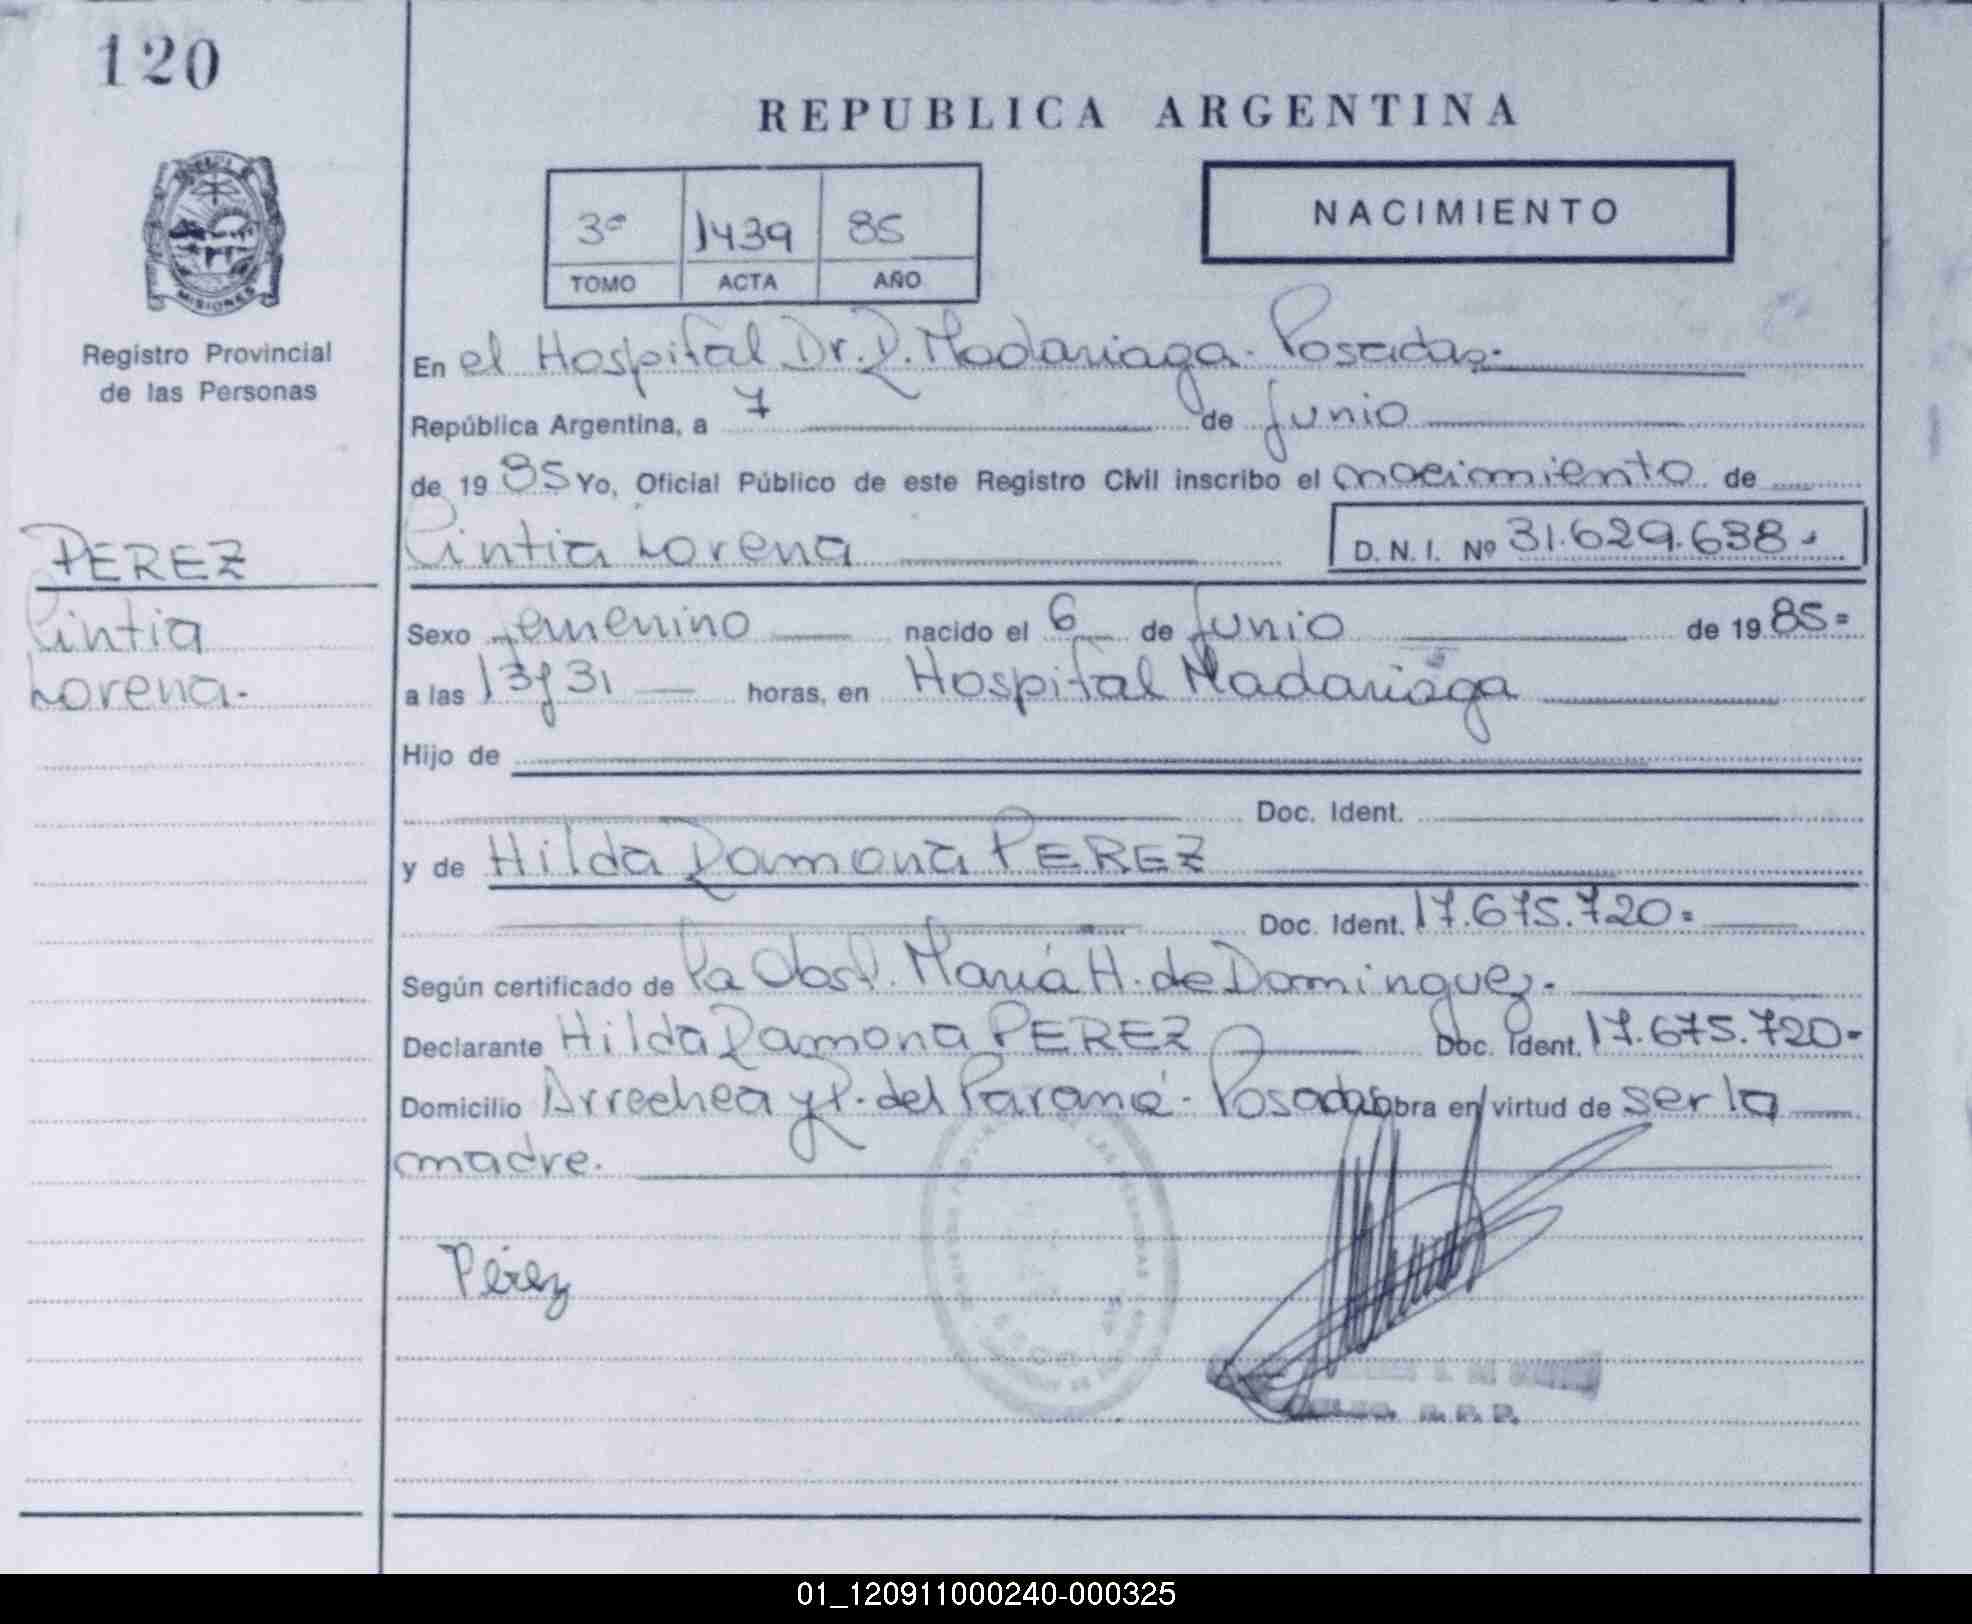 120
REPUBLICA ARGENTINA
NACIMIENTO
3º 1439 85
TOMO ACTA AÑO
MISIONES
Registro Provincial
de las Personas
En el Hospital Dr. R. Madariaga. Posadas.
República Argentina, a 7 de Junio
de 1985 Yo, Oficial Público de este Registro Civil inscribo el nacimiento de
Cintia Lorena D. N. I. Nº 31.629.638.
PEREZ
Cintia
Lorena.
Sexo femenino nacido el 6 de Junio de 1985=
a las 13 y 31 horas, en Hospital Madariaga
Hijo de
Doc. Ident.
y de Hilda Ramona PEREZ
Doc. Ident. 17.675.720=
Según certificado de la Obst. María H. de Dominguez.
Declarante Hilda Ramona PEREZ Doc. Ident. 17.675.720=
Domicilio Arrechea y P. del Paraná - Posadas obra en virtud de ser la
madre.
Pérez
R. P. P.
01_120911000240-000325